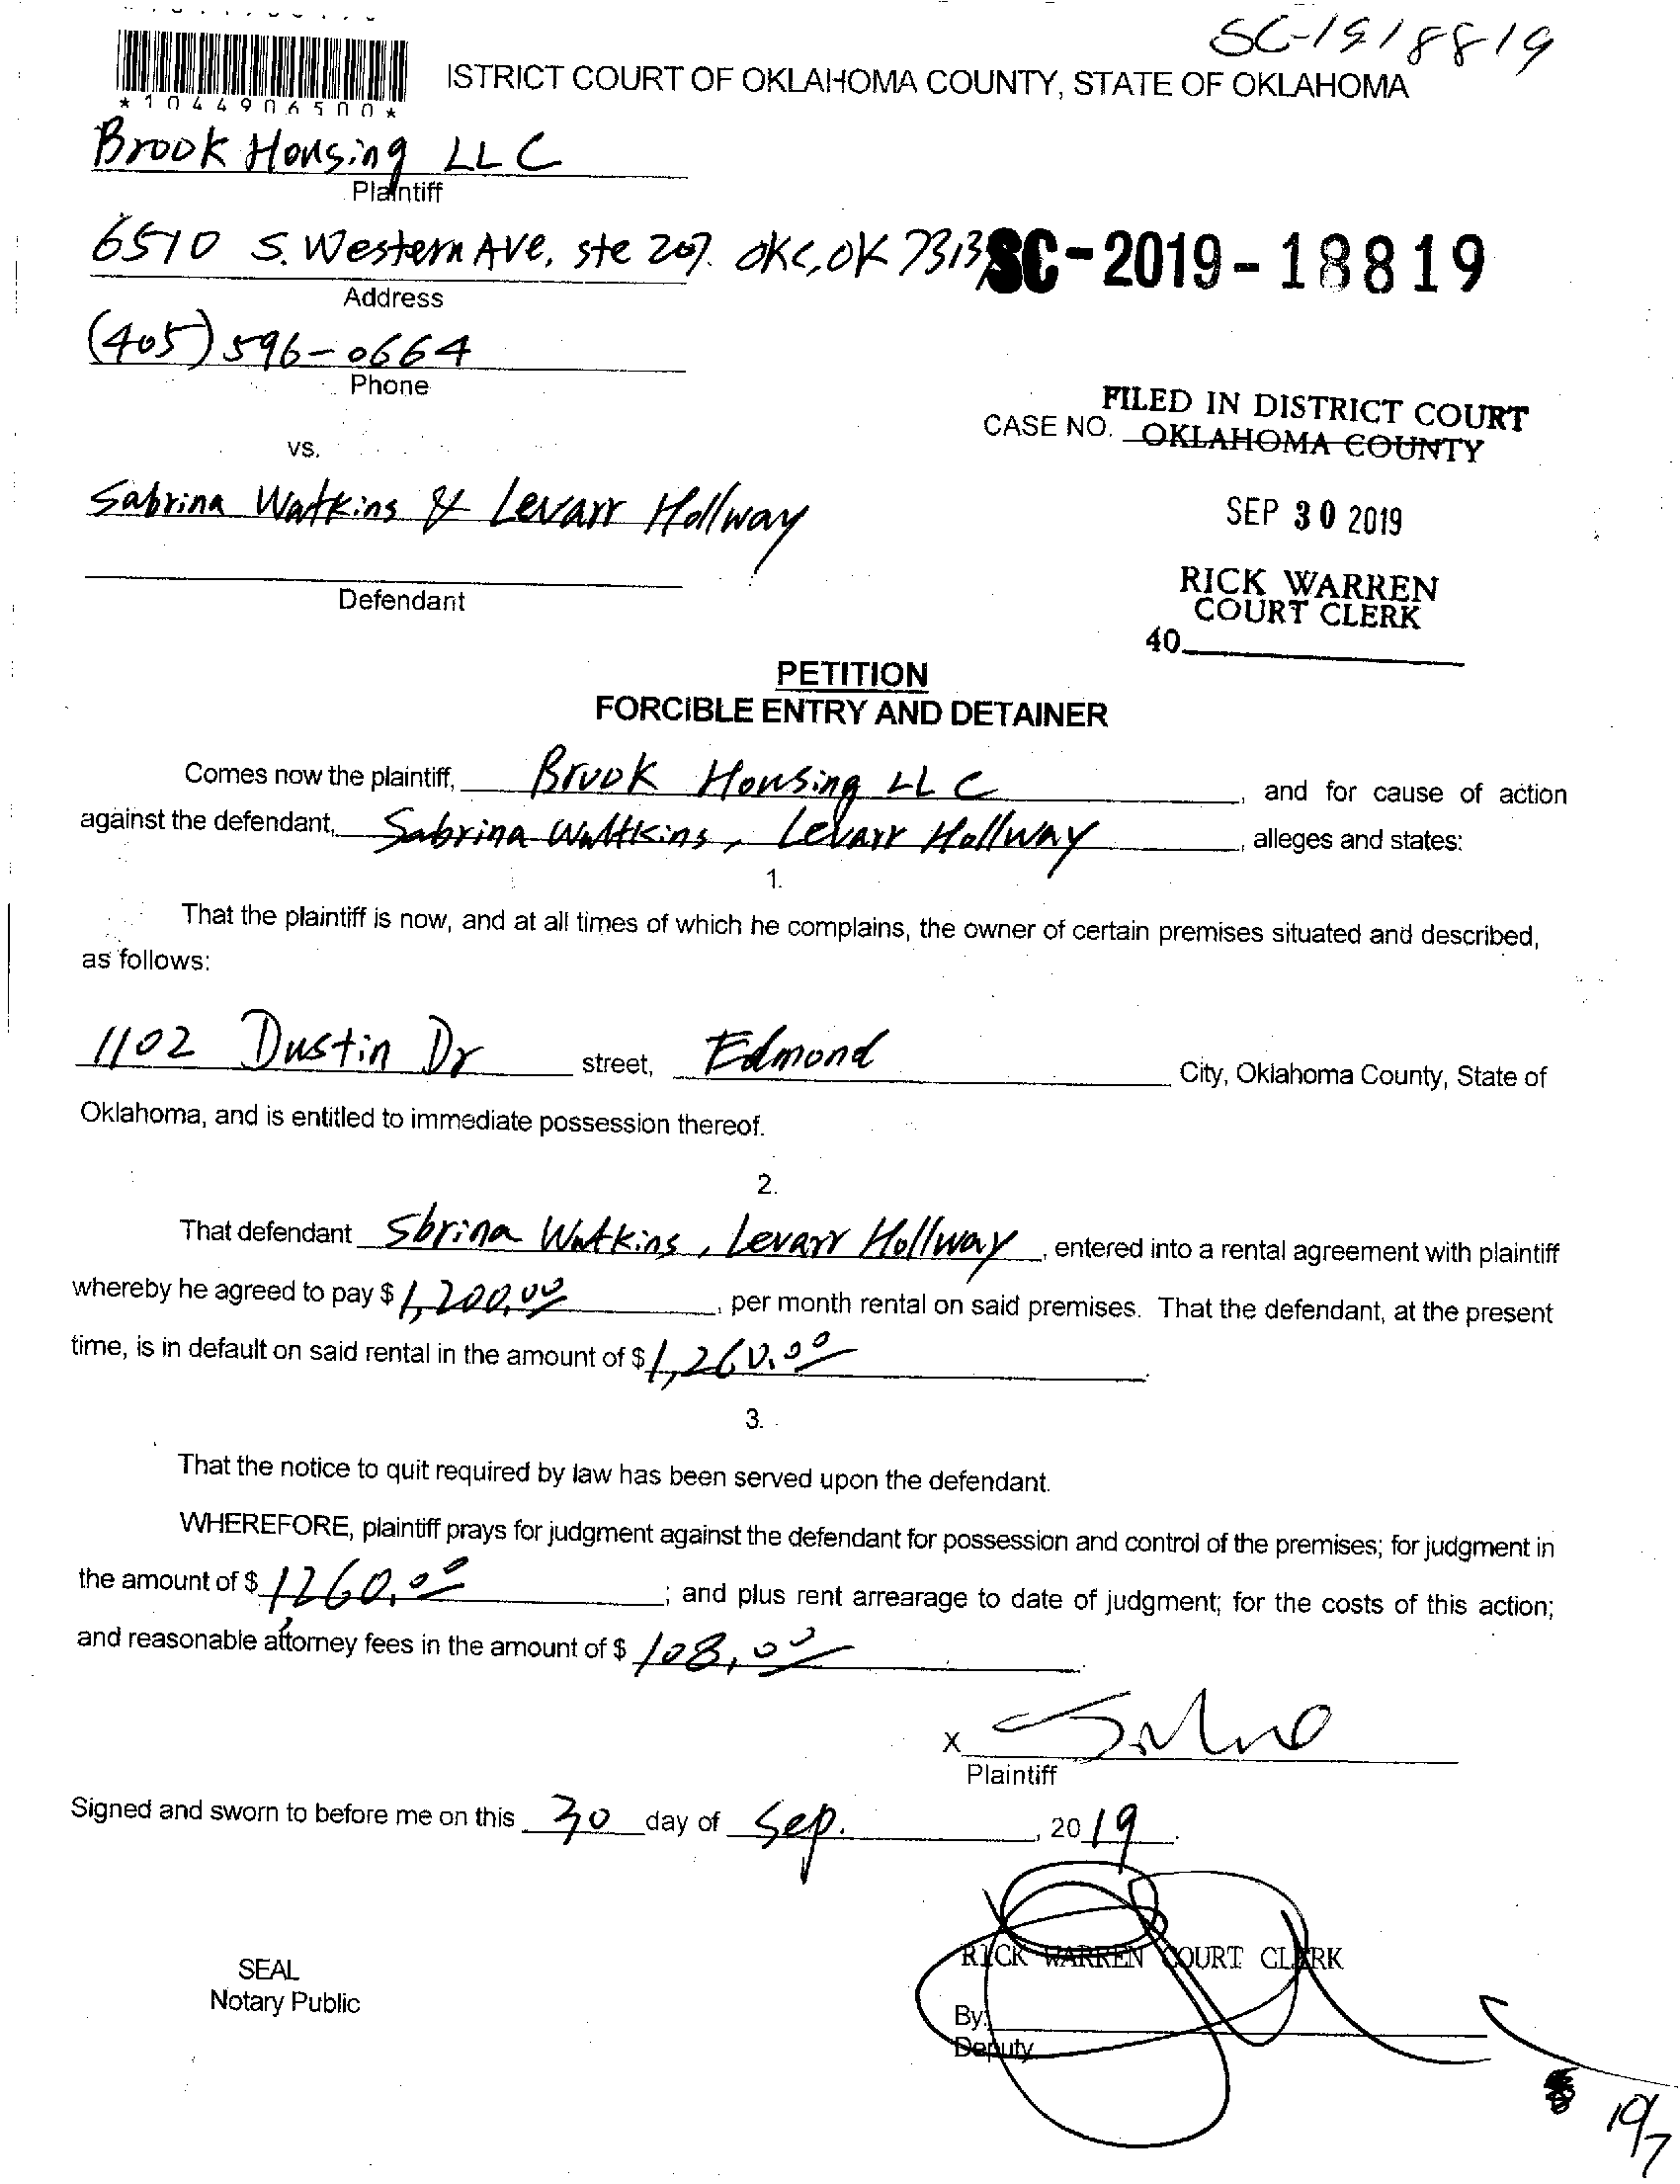 SC-1918819
*1044906500*
ISTRICT COURT OF OKLAHOMA COUNTY, STATE OF OKLAHOMA
Brook Housing LLC
Plaintiff
6510 S. Western AVE, ste 207. OKC, OK 73139
SC-2019-18819
Address
(405) 596-0664
Phone
FILED IN DISTRICT COURT
CASE NO. OKLAHOMA COUNTY
vs.
Sabrina Watkins & Levarr Hollway
SEP 30 2019
Defendant
RICK WARREN
COURT CLERK
40
PETITION
FORCIBLE ENTRY AND DETAINER
Comes now the plaintiff, Brook Housing LLC, and for cause of action
against the defendant, Sabrina Wattkins, Levarr Hollway, alleges and states:
1.
That the plaintiff is now, and at all times of which he complains, the owner of certain premises situated and described,
as follows:
1102 Dustin Dr street, Edmond City, Oklahoma County, State of
Oklahoma, and is entitled to immediate possession thereof.
2.
That defendant Sbrina Watkins, Levarr Hollway, entered into a rental agreement with plaintiff
whereby he agreed to pay $ 1,200.00, per month rental on said premises. That the defendant, at the present
time, is in default on said rental in the amount of $ 1,260.00.
3.
That the notice to quit required by law has been served upon the defendant.
WHEREFORE, plaintiff prays for judgment against the defendant for possession and control of the premises; for judgment in
the amount of $ 1260.00; and plus rent arrearage to date of judgment; for the costs of this action;
and reasonable attorney fees in the amount of $ 108.00.
X
Plaintiff
Signed and sworn to before me on this 30 day of Sep., 2019.
RICK WARREN COURT CLERK
SEAL
Notary Public
By:
Deputy
10/7